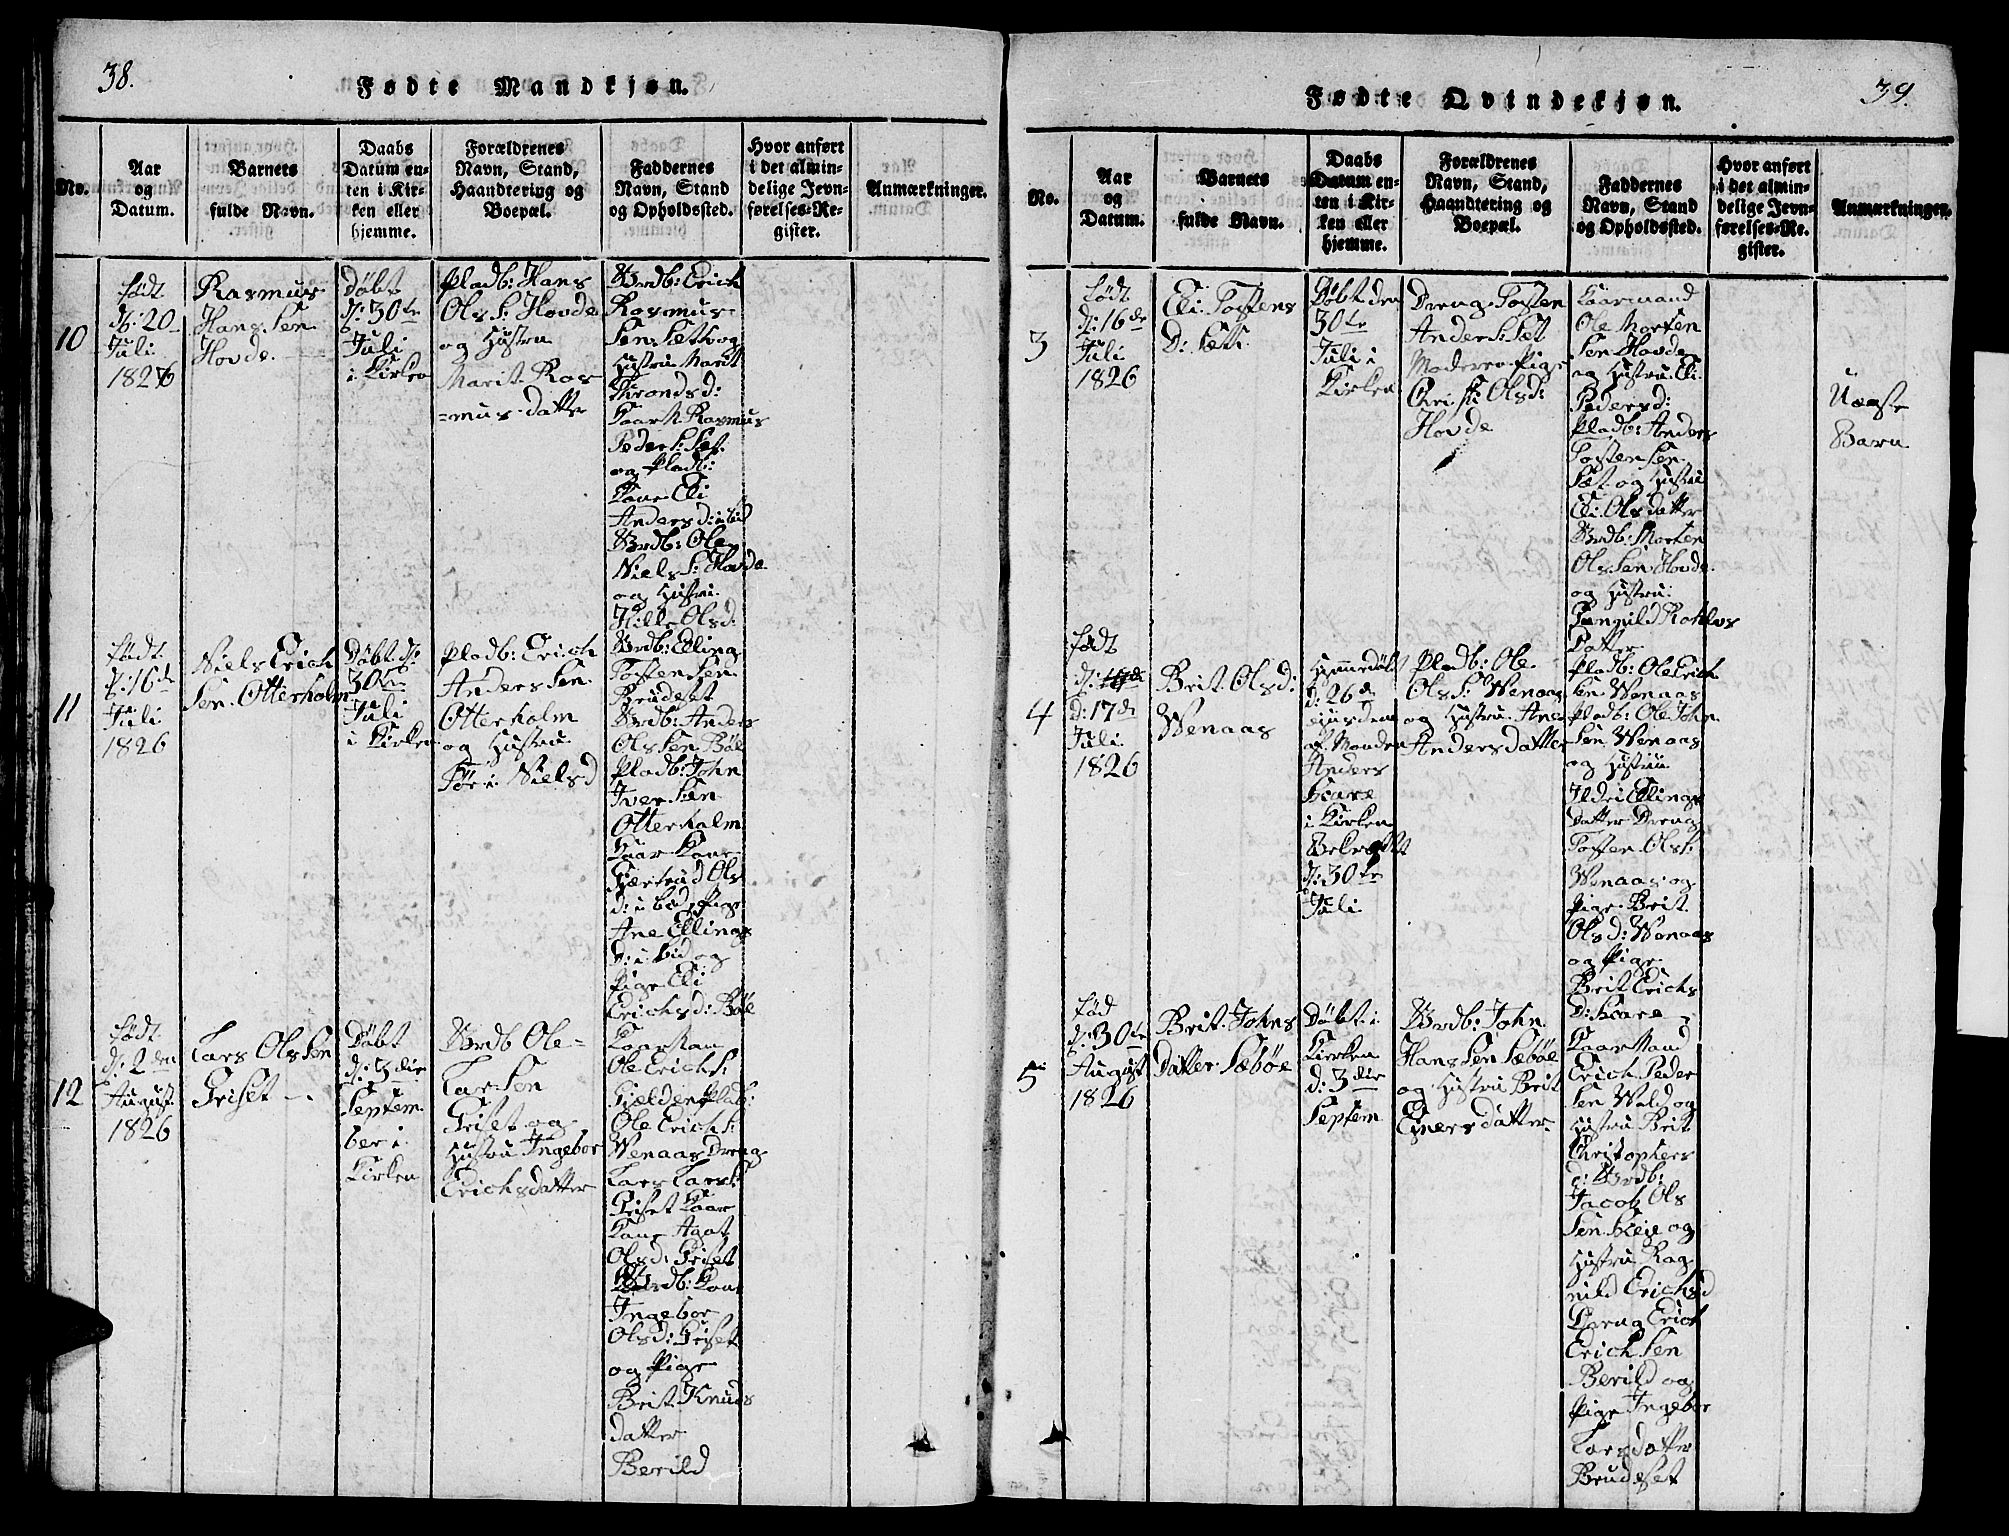 38.
Fødte Mandkjøn.
No.
Aar
og
Datum.
Barnets
fulde Navn.
Daabs
Datum en-
ten i Kir-
ken eller
hjemme.
Forældrenes
Navn, Stand,
Haandtering og
Boepæl.
Faddernes
Navn, Stand
og Opholdssted.
Hvor anført
i det almin-
delige Jevn-
førelses-Re-
gister.
Anmærkninger.
10
født
d: 20
Juli
1826
Rasmus
Hans Sen
Hovde
Døbt
d: 30te
Juli
i Kirken
pladb: Hans
Ols S: Hovde
og Hustru
Marit Ras
=mus datter
Brdb: Erich
Rasmus
Sen Sætt og
Hustru Marit
Thronds d:
Kaark. Rasmus
Peder S: Sæt
og pladb:
Kone Eli
Anders d: ibid
Brdb: Ole
Niels S: Hovde
og Hustru
Hilles Ols d:
11
født
d: 16de
Juli
1826
Niels Erich
Sen Otterholm
Døbt d:
30te
Juli
i Kirken
pladb: Erich
Anders Sen
Otterholm
og Hustru
Nielsd
Brdb: Elling
Tosten Sen
Brudeset
Brdb: Anders
Ols Sen Bøe
pladb: John
Iver Sen
Otterholm
Kaar Kone
Gjertrud Ols
d: ibid, pige
Ane Ellings
d: ibid og
pige Eli
Erichs d: Bøe
12
født
d: 2den
August
1826
Lars Ols Sen
Griset
Døbt
d: 3die
Septem
ber i
Kirken
Brdb Ole
Lar Sen
Griset og
Hustru Ingebor
Erichsdatter
Kaarman
Ole Erich S:
Gjelden pladb:
Ole Erich S:
Wenaas Dreng
Lars Lars S:
Griset Kaar
Kone Agat
Ols d: Griset
Brdb: Kone
Ingebor
Ols d: Griset
og pige
Brit Knuds
datter
Berild
39.
Fødte Qvindekjøn.
No.
Aar
og
Datum.
Barnets
fulde Navn.
Daabs
Datum en-
ten i Kir-
ken eller
hjemme.
Forældrenes
Navn, Stand,
Haandtering og
Boepæl.
Faddernes
Navn, Stand
og Opholdssted.
Hvor anført
i det almin-
delige Jevn-
førelses-Re-
gister.
Anmærkninger.
3
født
d: 16de
Juli
1826
Eli Tostens
D: Sætt
Døbt den
30te
Juli i
Kirken
Dreng Tosten
Anders S: Sæt
Moderen Pige
Christi Olsd:
Hovde
Kaarmand
Ole Morten
Sen Hovde
og Hustru Eli
Peders d:
pladb: Anders
Tosten Sen
Sæt og Hustru
Eli Olsdatter
Brdb: Morten
Ols Sen Hovde
og Hustru
Datter
Uægte
Barn
4
født
d: 17de
Juli
1826
Brit Olsd:
Wenaas
Hjemmedøbt
d: 26de
ejusdem
af Manden
Anders
Skare
i Kirken
d: 30te
Juli
pladb: Ole
Ols S: Wenaas
og Hustru Ane
Andersdatter
pladb: Ole Erich
Sen Wenaas
pladb: Ole John
Sen Wenaas
og Hustru
Ildri Ellings
datter Dreng
Tosten Ols S:
Wenaas og
pige Brit
Ols d: Wenaas
og pige
Brit Erichs
D: Skare
5
fød
d: 30te
August
1826
Brit Johns
Datter Sæbøe
Døbt i
Kirken
d: 3die
Septem
Brdb: John
Hans Sen Sæbøe
og Hustru Brit
Einersdatter
Kaar Mand
Erich Peder
Sen Wold og
Hustru Brit
Christophers
d: Brdb:
Jacob Ols
Sen Skeie og
Hustru Rag
nild Erichsd
Dreng Erich
Erich Sen
Berild og
pige Ingebor
Larsdatter
Brudeset